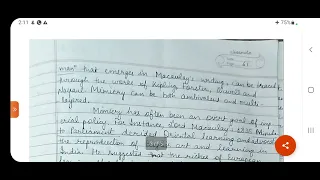 2:11
75%
men" that emerges in Macaulay's writing, can be traced
through the works of Kipling, Forster, Orwell and
Naipaul. Mimicry can be both ambivalent and multi-
layered.
Mimicry has often been an overt goal of imp-
erial policy. For instance, Lord Macaulay's 1835 Minute
to Parliament derided Oriental learning and advocated
the reproduction of art and learning in
India. He suggested that the riches of European